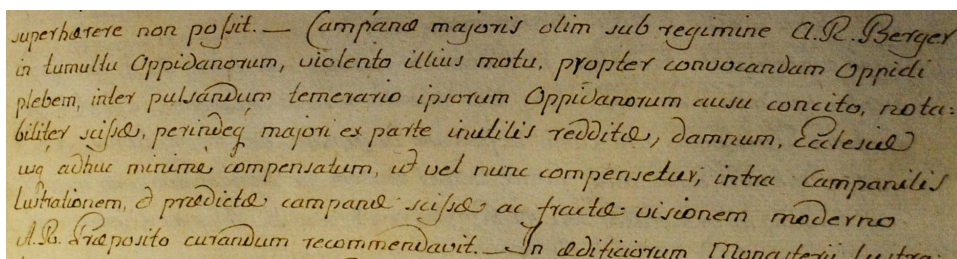 superhærere non possit. — Campanæ majoris olim sub regimine A. R. Berger
in tumultu Oppidanorum, violento illius motu, propter convocandam Oppidi
plebem, inter pulsandum temerario ipsorum Oppidanorum ausu concito, nota=
biliter scissæ, perindeq majori ex parte inutilis redditæ, damnum, Ecclesiæ
usq adhuc minime compensatum, id vel nunc compensetur, intra Campanilis
lustrationem, & prædictæ campanæ scissæ ac fractæ visionem moderno
A. R. Præposito curandum recommendavit. — In ædificiorum Monasterij lustra=